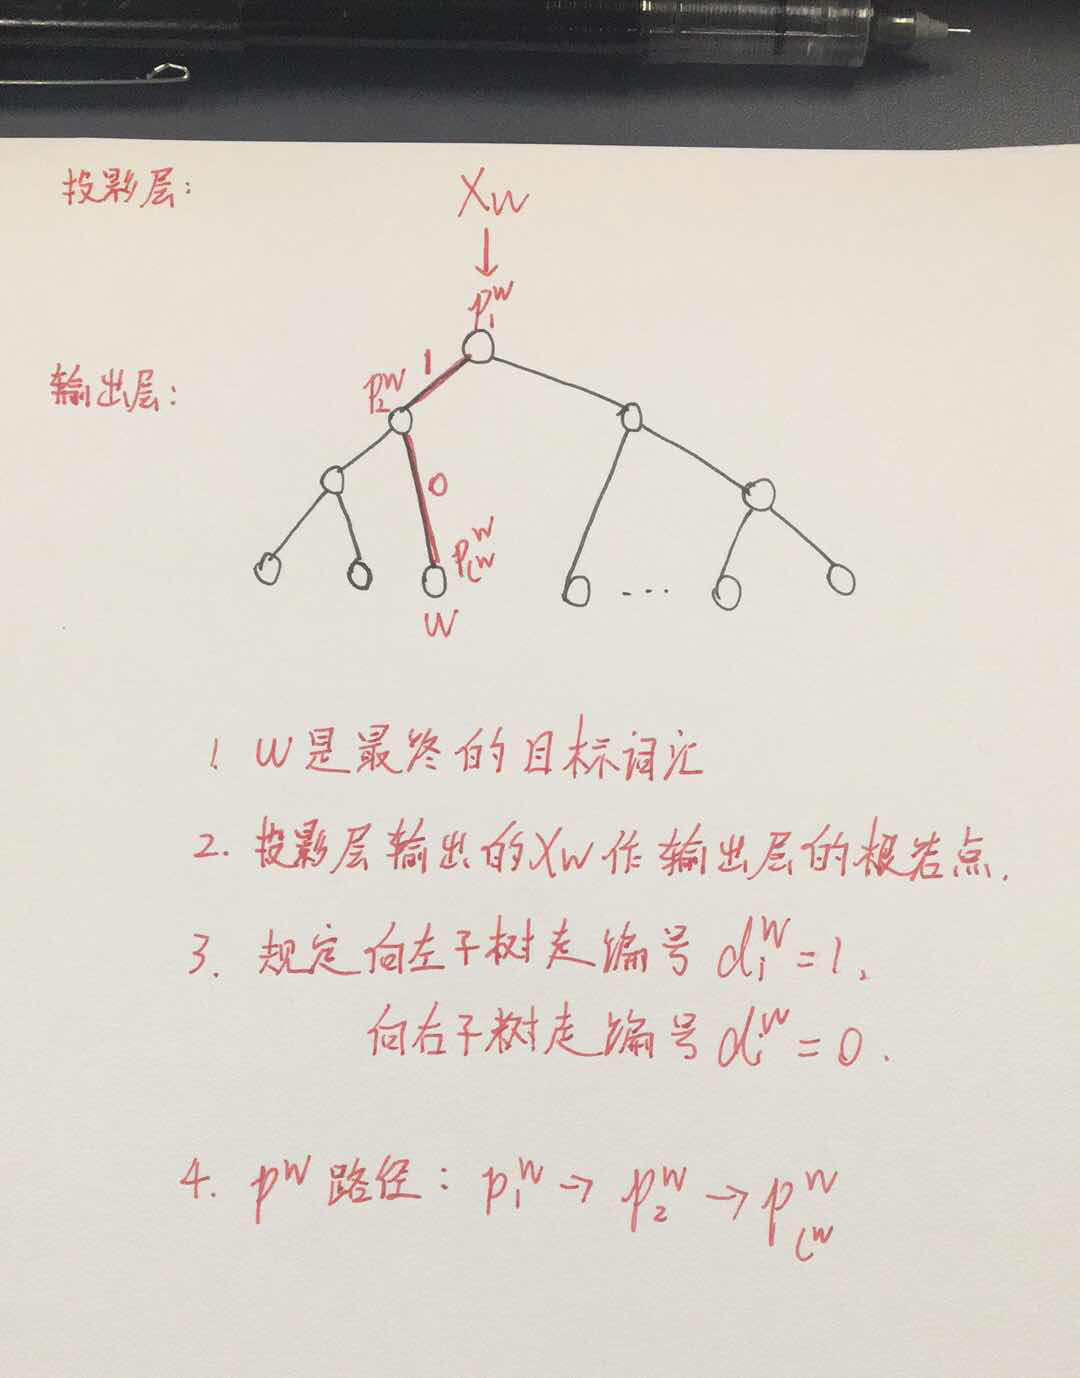 投影层:
Xw
p₁ʷ
1
输出层:
p₂ʷ
0
p_{lʷ}ʷ
...
w
1. w是最终的目标词汇
2. 投影层输出的Xw作输出层的根岩点.
3. 规定向左子树走编号 dᵢʷ=1,
向右子树走编号 dᵢʷ=0.
4. pʷ路径: p₁ʷ→p₂ʷ→p_{lʷ}ʷ